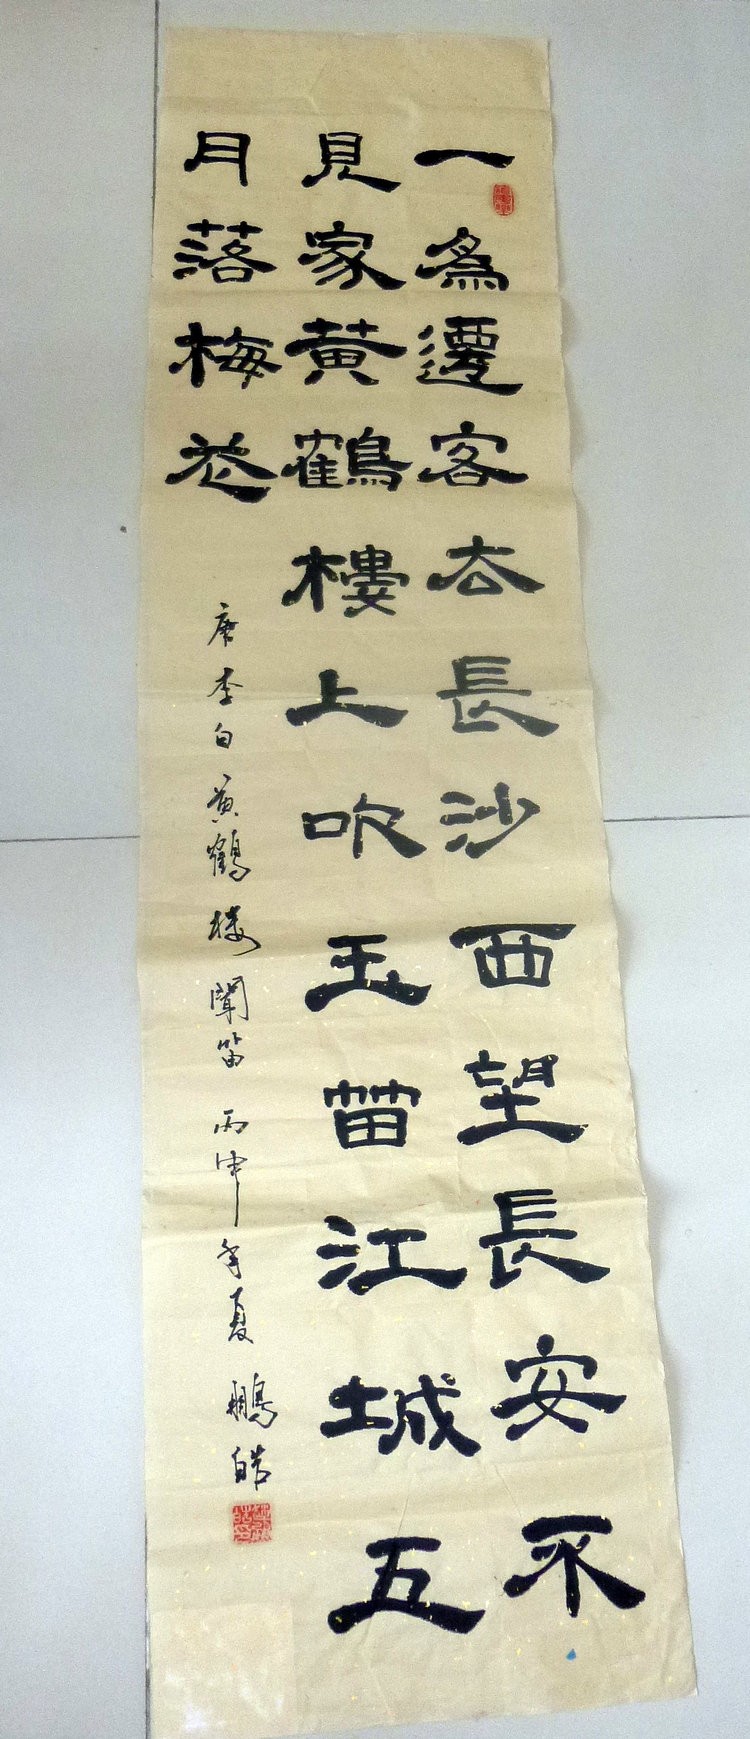 一為遷客去長沙西望長安不
見家黄鶴樓上吹玉笛江城五
月落梅花
唐李白黄鶴楼聞笛 丙申年夏 鵬皓